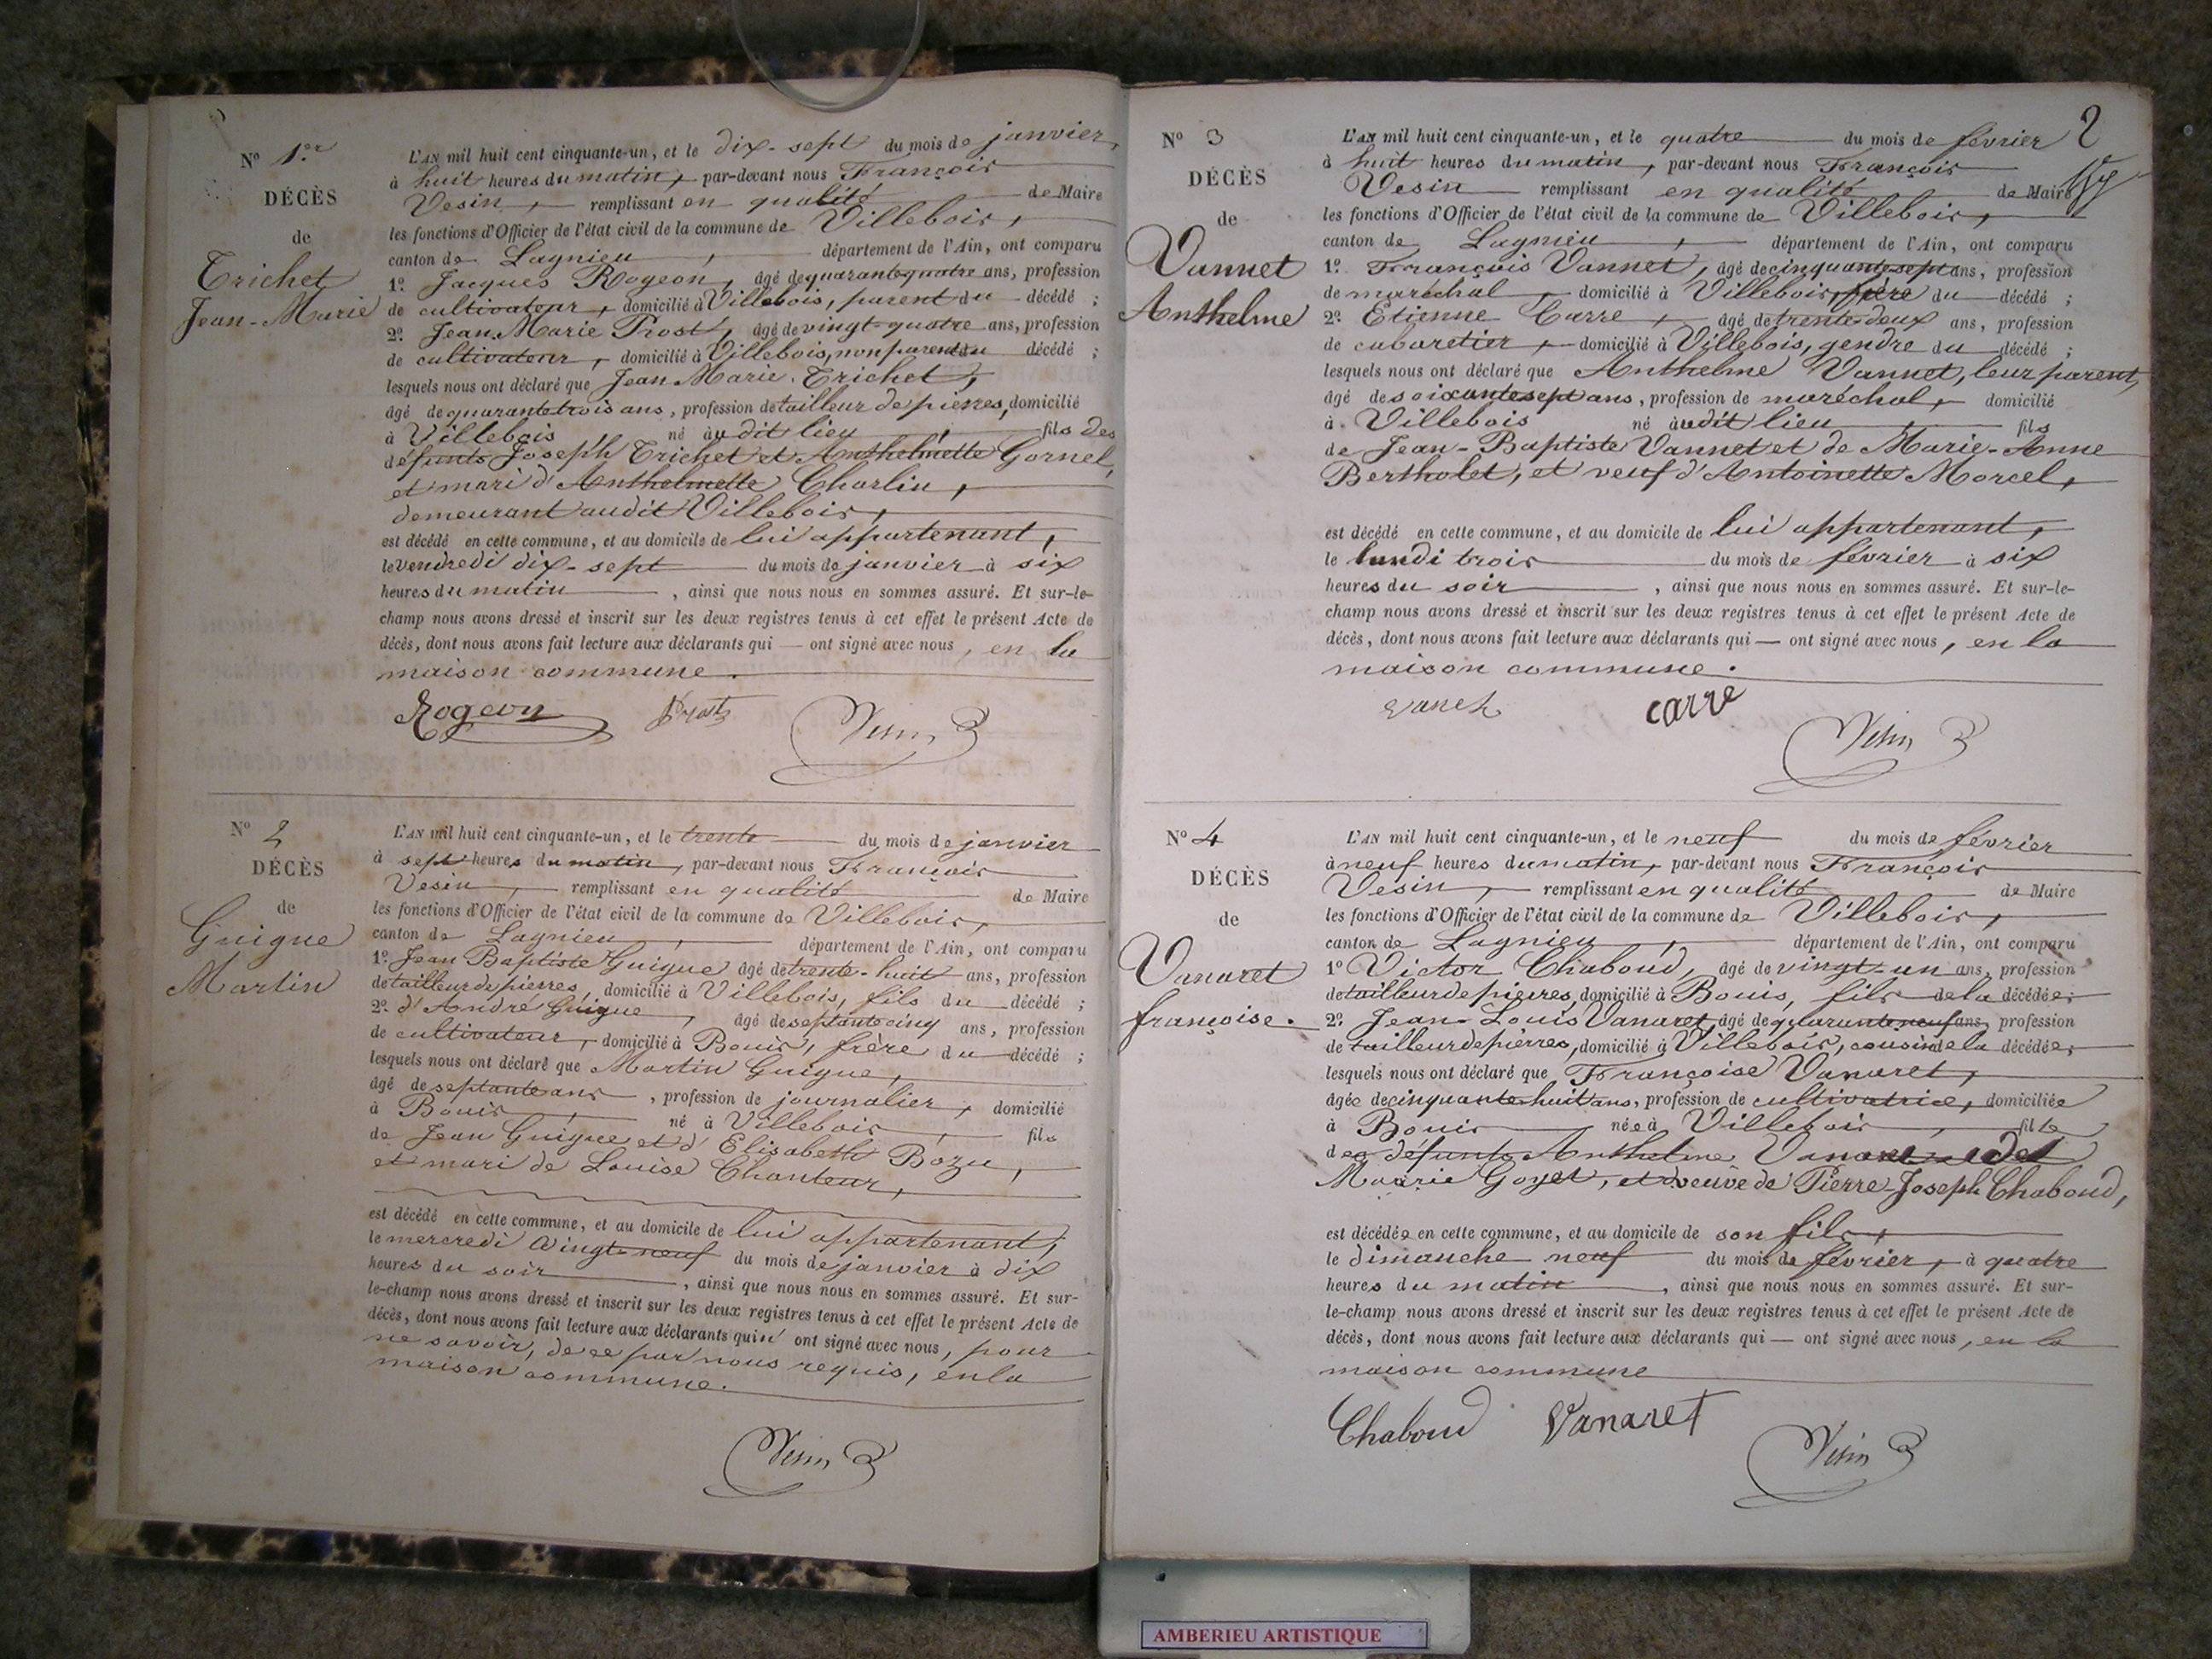 N° 1.er
DÉCÈS
de
Trichet
Jean-Marie
L'AN mil huit cent cinquante-un, et le dix-sept du mois de janvier,
à huit heures du matin, par-devant nous François
Vesin, remplissant en qualité de Maire
les fonctions d'Officier de l'état civil de la commune de Villebois,
canton de Lagnieu, département de l'Ain, ont comparu
1° Jacques Rogeon, âgé de quarante quatre ans, profession
de cultivateur, domicilié à Villebois, parent du décédé ;
2° Jean Marie Prost, âgé de vingt-quatre ans, profession
de cultivateur, domicilié à Villebois, non parent du décédé ;
lesquels nous ont déclaré que Jean Marie Trichet,
âgé de quarante trois ans, profession de tailleur de pierres, domicilié
à Villebois né au dit lieu, fils des
défunts Joseph Trichet et Anthelmette Gornel,
et mari d'Anthelmette Charlin,
demeurant audit Villebois,
est décédé en cette commune, et au domicile de lui appartenant,
le vendredi dix-sept du mois de janvier à six
heures du matin, ainsi que nous nous en sommes assuré. Et sur-le-
champ nous avons dressé et inscrit sur les deux registres tenus à cet effet le présent Acte de
décès, dont nous avons fait lecture aux déclarants qui — ont signé avec nous, en la
maison commune.
Rogeon Prost Vesin
N° 2
DÉCÈS
de
Guigue
Martin
L'AN mil huit cent cinquante-un, et le trente du mois de janvier
à sept heures du matin, par-devant nous François
Vesin, remplissant en qualité de Maire
les fonctions d'Officier de l'état civil de la commune de Villebois,
canton de Lagnieu, département de l'Ain, ont comparu
1° Jean Baptiste Guigue âgé de trente-huit ans, profession
de tailleur de pierres, domicilié à Villebois, fils du décédé ;
2° d'André Guigue, âgé de septante cinq ans, profession
de cultivateur, domicilié à Bouis, frère du décédé ;
lesquels nous ont déclaré que Martin Guigue,
âgé de septante ans, profession de journalier, domicilié
à Bouis, né à Villebois, fils
de Jean Guigue et d'Elisabeth Bozu,
et mari de Louise Chanteur,
est décédé en cette commune, et au domicile de lui appartenant,
le mercredi vingt-neuf du mois de janvier à dix
heures du soir, ainsi que nous nous en sommes assuré. Et sur-
le-champ nous avons dressé et inscrit sur les deux registres tenus à cet effet le présent Acte de
décès, dont nous avons fait lecture aux déclarants qui n' ont signé avec nous, pour
ne savoir, de ce par nous requis, en la
maison commune.
Vesin
2
N° 3
DÉCÈS
de
Vannet
Anthelme
L'AN mil huit cent cinquante-un, et le quatre du mois de février
à huit heures du matin, par-devant nous François
Vesin remplissant en qualité de Maire
les fonctions d'Officier de l'état civil de la commune de Villebois,
canton de Lagnieu, département de l'Ain, ont comparu
1° François Vannet, âgé de cinquante sept ans, profession
de maréchal, domicilié à Villebois, frère du décédé ;
2° Etienne Carre, âgé de trente-deux ans, profession
de cabaretier, domicilié à Villebois, gendre du décédé ;
lesquels nous ont déclaré que Anthelme Vannet, leur parent,
âgé de soixante sept ans, profession de maréchal, domicilié
à Villebois né audit lieu, fils
de Jean-Baptiste Vannet et de Marie-Anne
Bertholet, et veuf d'Antoinette Morcel,
est décédé en cette commune, et au domicile de lui appartenant,
le lundi trois du mois de février à six
heures du soir, ainsi que nous nous en sommes assuré. Et sur-le-
champ nous avons dressé et inscrit sur les deux registres tenus à cet effet le présent Acte de
décès, dont nous avons fait lecture aux déclarants qui — ont signé avec nous, en la
maison commune.
carre Vesin
N° 4
DÉCÈS
de
Vanaret
françoise.
L'AN mil huit cent cinquante-un, et le neuf du mois de février
à neuf heures du matin, par-devant nous François
Vesin, remplissant en qualité de Maire
les fonctions d'Officier de l'état civil de la commune de Villebois,
canton de Lagnieu, département de l'Ain, ont comparu
1° Victor Chaboud, âgé de vingt-un ans, profession
de tailleur de pierres, domicilié à Bouis, fils de la décédée ;
2° Jean-Louis Vanaret, âgé de quarante neuf ans, profession
de tailleur de pierres, domicilié à Villebois, cousin de la décédée ;
lesquels nous ont déclaré que Françoise Vanaret,
âgée de cinquante-huit ans, profession de cultivatrice, domiciliée
à Bouis, née à Villebois, fille
des défunts Anthelme Vanaret et de
Marie Goyet, et veuve de Pierre-Joseph Chaboud,
est décédée en cette commune, et au domicile de son fils,
le dimanche neuf du mois de février, à quatre
heures du matin, ainsi que nous nous en sommes assuré. Et sur-
le-champ nous avons dressé et inscrit sur les deux registres tenus à cet effet le présent Acte de
décès, dont nous avons fait lecture aux déclarants qui — ont signé avec nous, en la
maison commune
Chaboud Vanaret Vesin
AMBERIEU ARTISTIQUE